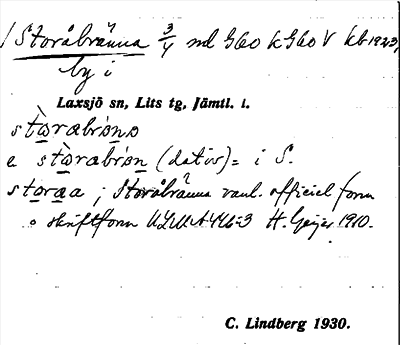 Storåbränna 3/4 ml G60 k G60 V kb 1923,
by i
Laxsjö sn, Lits tg, Jämtl. l.
stòrabrǿnɔ
e stòrabrǿn (dativ) = i S.
storaa ; Storåbränna vanl. officiel form
o skriftform ULMA 446:3 H. Geijer 1910.
C. Lindberg 1930.